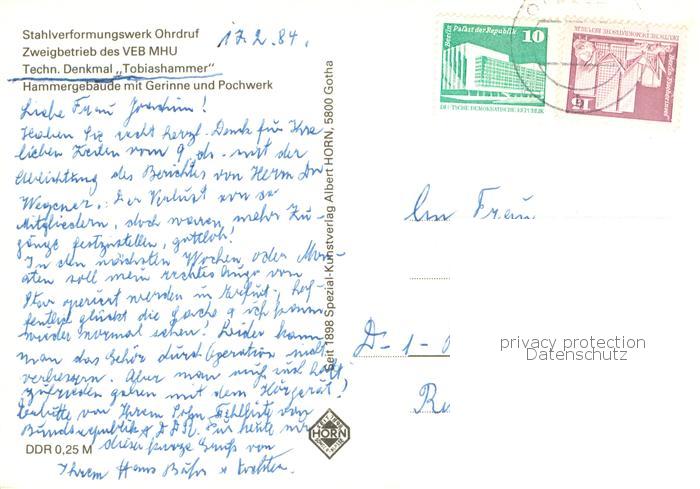 Stahlverformungswerk Ohrdruf
Zweigbetrieb des VEB MHU
Techn. Denkmal „Tobiashammer"
Hammergebäude mit Gerinne und Pochwerk
17.2.84.
Liebe Frau
Haben Sie recht herzl. Dank für Ihre
lieben Zeilen vom 9. ds. mit der
des Berichtes von Herrn Dr
Wegener. Der Verlust von
Mitgliedern, doch waren mehr Zu-
gänge festzustellen, gottlob!
In den nächsten Wochen oder Mon-
aten soll mein rechtes Auge von
Star operiert werden in Erfurt; hof-
fentlich glückt die Sache u ich kann
wieder normal sehen! Leider kann
man das Gehör durch Operation nicht
verbessern. Aber man muß sich halt
zufrieden geben mit dem Hörgerät!
von Ihrem Sohn
Bundesrepublik DDR. Für heute nur
dieser kurze Gruß von
Ihrem Hans
DDR 0,25 M
HORN
Seit 1898 Spezial-Kunstverlag Albert HORN, 5800 Gotha
Berlin Palast der Republik
10
DEUTSCHE DEMOKRATISCHE REPUBLIK
15
DEUTSCHE DEMOKRATISCHE REPUBLIK
Frau
D-1-
privacy protection
Datenschutz